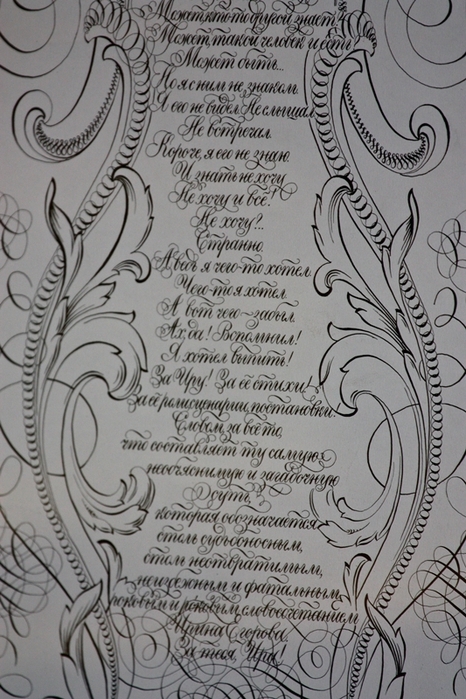 Может кто-то другой знает?
Может такой человек и есть
Может быть...
Но я с ним не знаком.
Я его не видел. Не слышал.
Не встречал.
Короче, я его не знаю.
И знать не хочу.
Не хочу и всё!
Не хочу?..
Странно.
А ведь я чего-то хотел.
Чего-то я хотел.
А вот чего – забыл.
Ах да! Вспомнил!
Я хотел выпить!
За Иру! За её стихи,
за её ром. сценарии, постановки.
Словом, за всё то,
что составляет ту самую
необъяснимую и загадочную
суть,
которая обозначается
столь судьбоносным,
столь неотвратимым,
неизбежным и фатальным,
роковым и роковым, словосочетанием
Ирина Егорова.
За тебя, Ира!